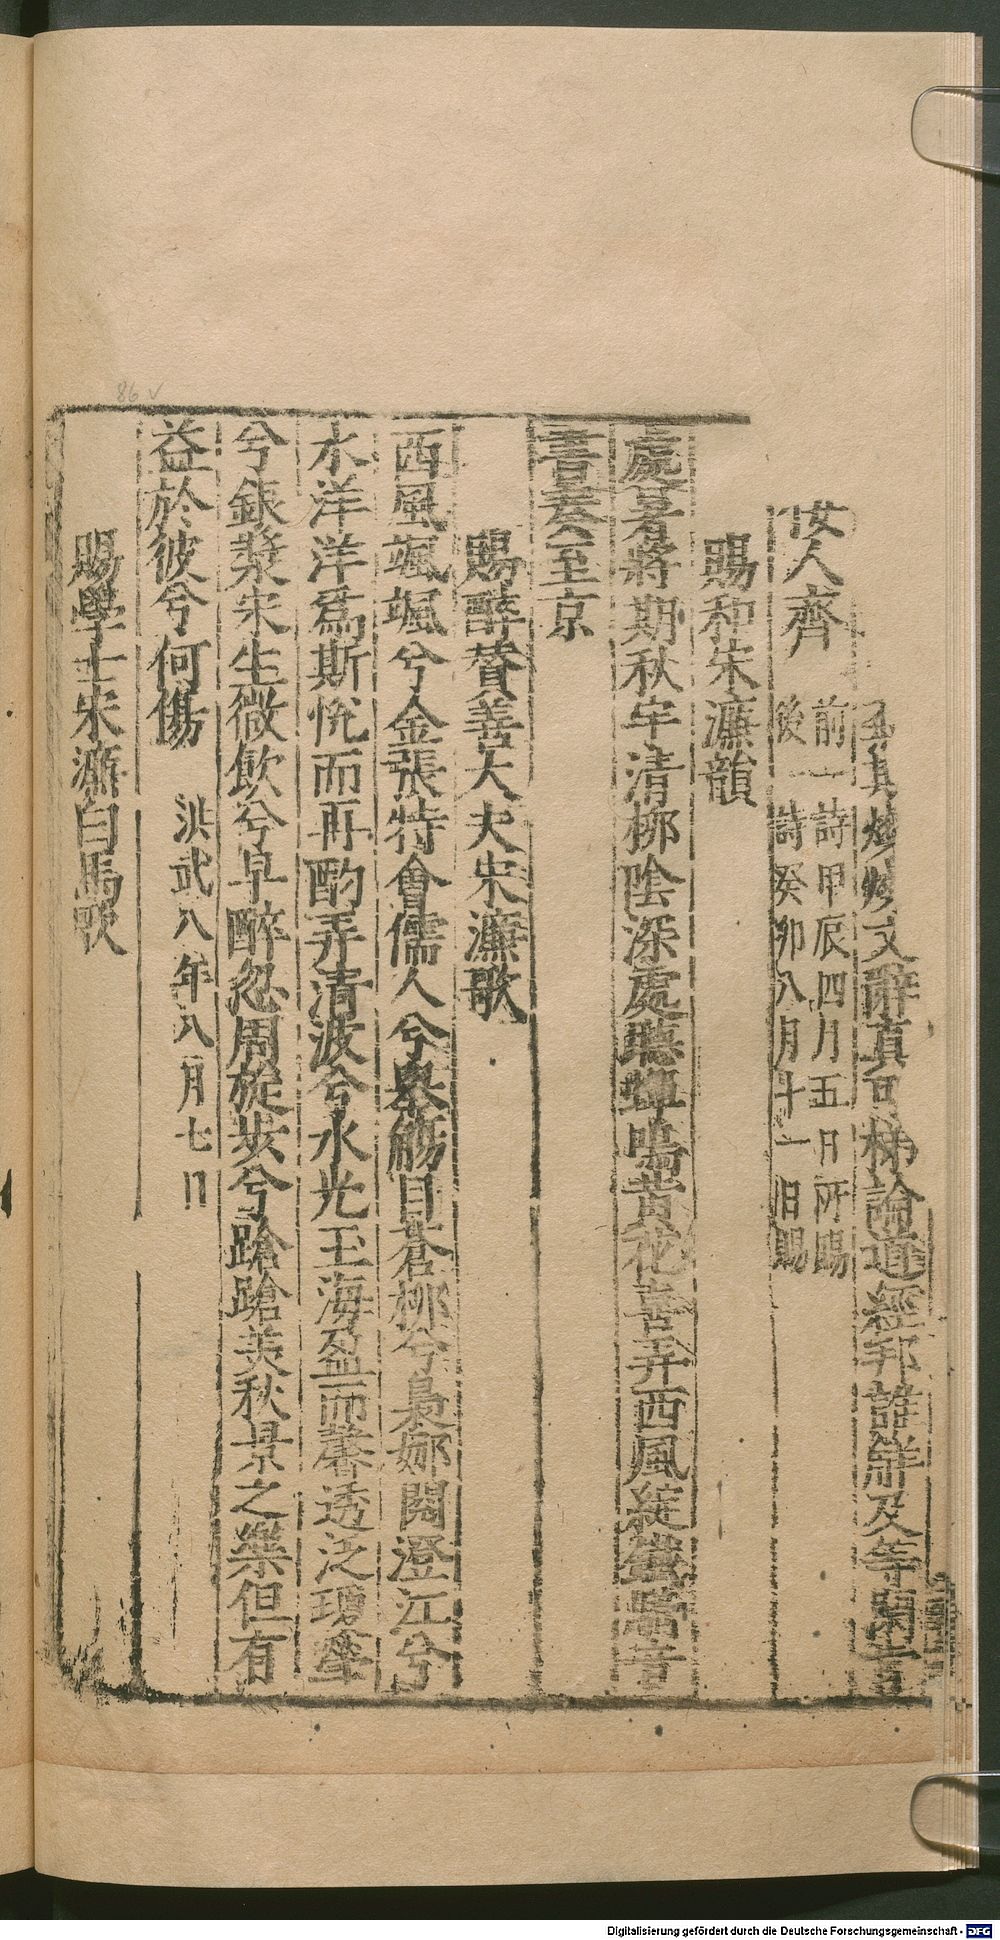 其燦燦文辭真可稱論道經邦誰解及等閑
女人齊 前一詩甲辰四月五日所賜
後一詩癸卯八月十一日賜
賜和宋濂韻
處暑將期秋牢清柳陰深處聽蟬鳴黃花喜弄西風綻
書奏至京
賜醉贊善大夫宋濂歌
西風颯颯兮金張特會儒人兮舉觴目蒼柳兮裊娜閱澄江兮
水洋洋爲斯悅而再酌弄清波兮水光玉海盈而馨透泛瓊
兮銀漿宋生微飲兮早醉忽周旋步兮蹌蹌美秋景之樂但有
益於彼兮何傷 洪武八年八月七日
賜學士宋濂白馬歌
86 v
Digitalisierung gefördert durch die Deutsche Forschungsgemeinschaft - DFG